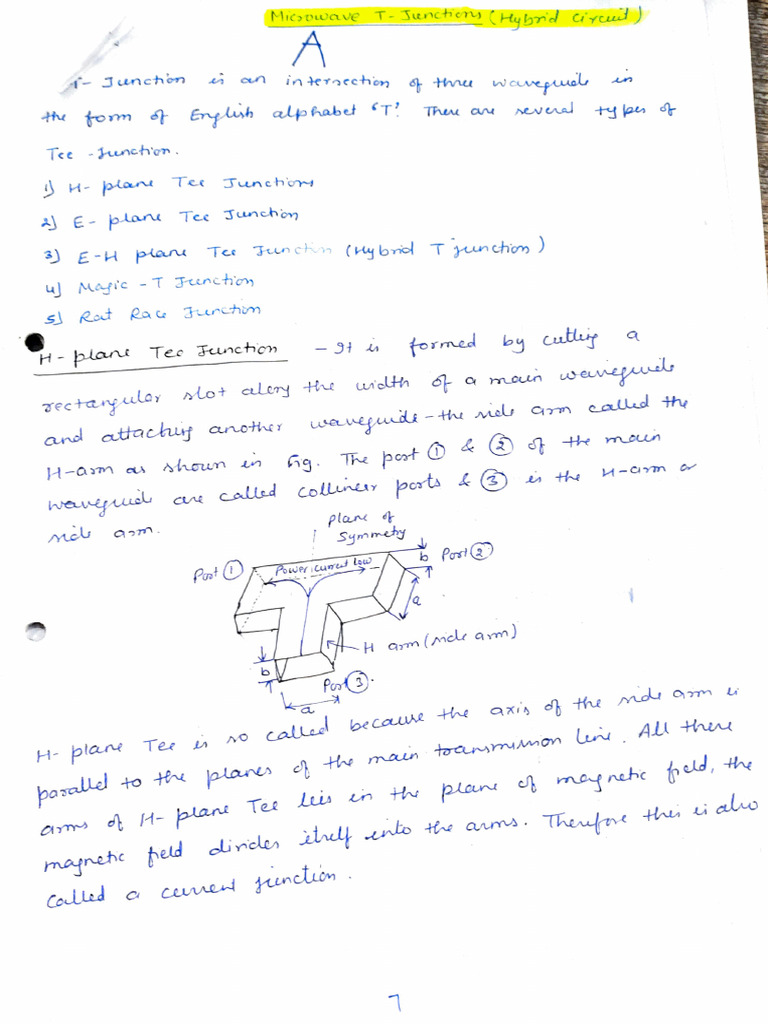 Microwave T-Junctions (Hybrid Circuit)
A
T- Junction is an intersection of three waveguide in
the form of English alphabet 'T'. There are several types of
Tee -Junction.
1) H- plane Tee Junctions
2) E- plane Tee Junction
3) E-H plane Tee Junction (Hybrid T junction)
4) Magic -T Junction
5) Rat Race Junction
H- plane Tee Junction - It is formed by cutting a
rectangular slot along the width of a main waveguide
and attaching another waveguide - the side arm called the
H-arm as shown in fig. The port ① & ② of the main
waveguide are called collinear ports & ③ is the H-arm or
side arm.
Plane of
Symmetry
Port ①
Power current
b
Port ②
a
H arm (side arm)
b
Port ③.
a
H- plane Tee is so called because the axis of the side arm is
parallel to the planes of the main transmission line. All there
arms of H- plane Tee lies in the plane of magnetic field, the
magnetic field divides itself into the arms. Therefore this is also
called a current junction.
7